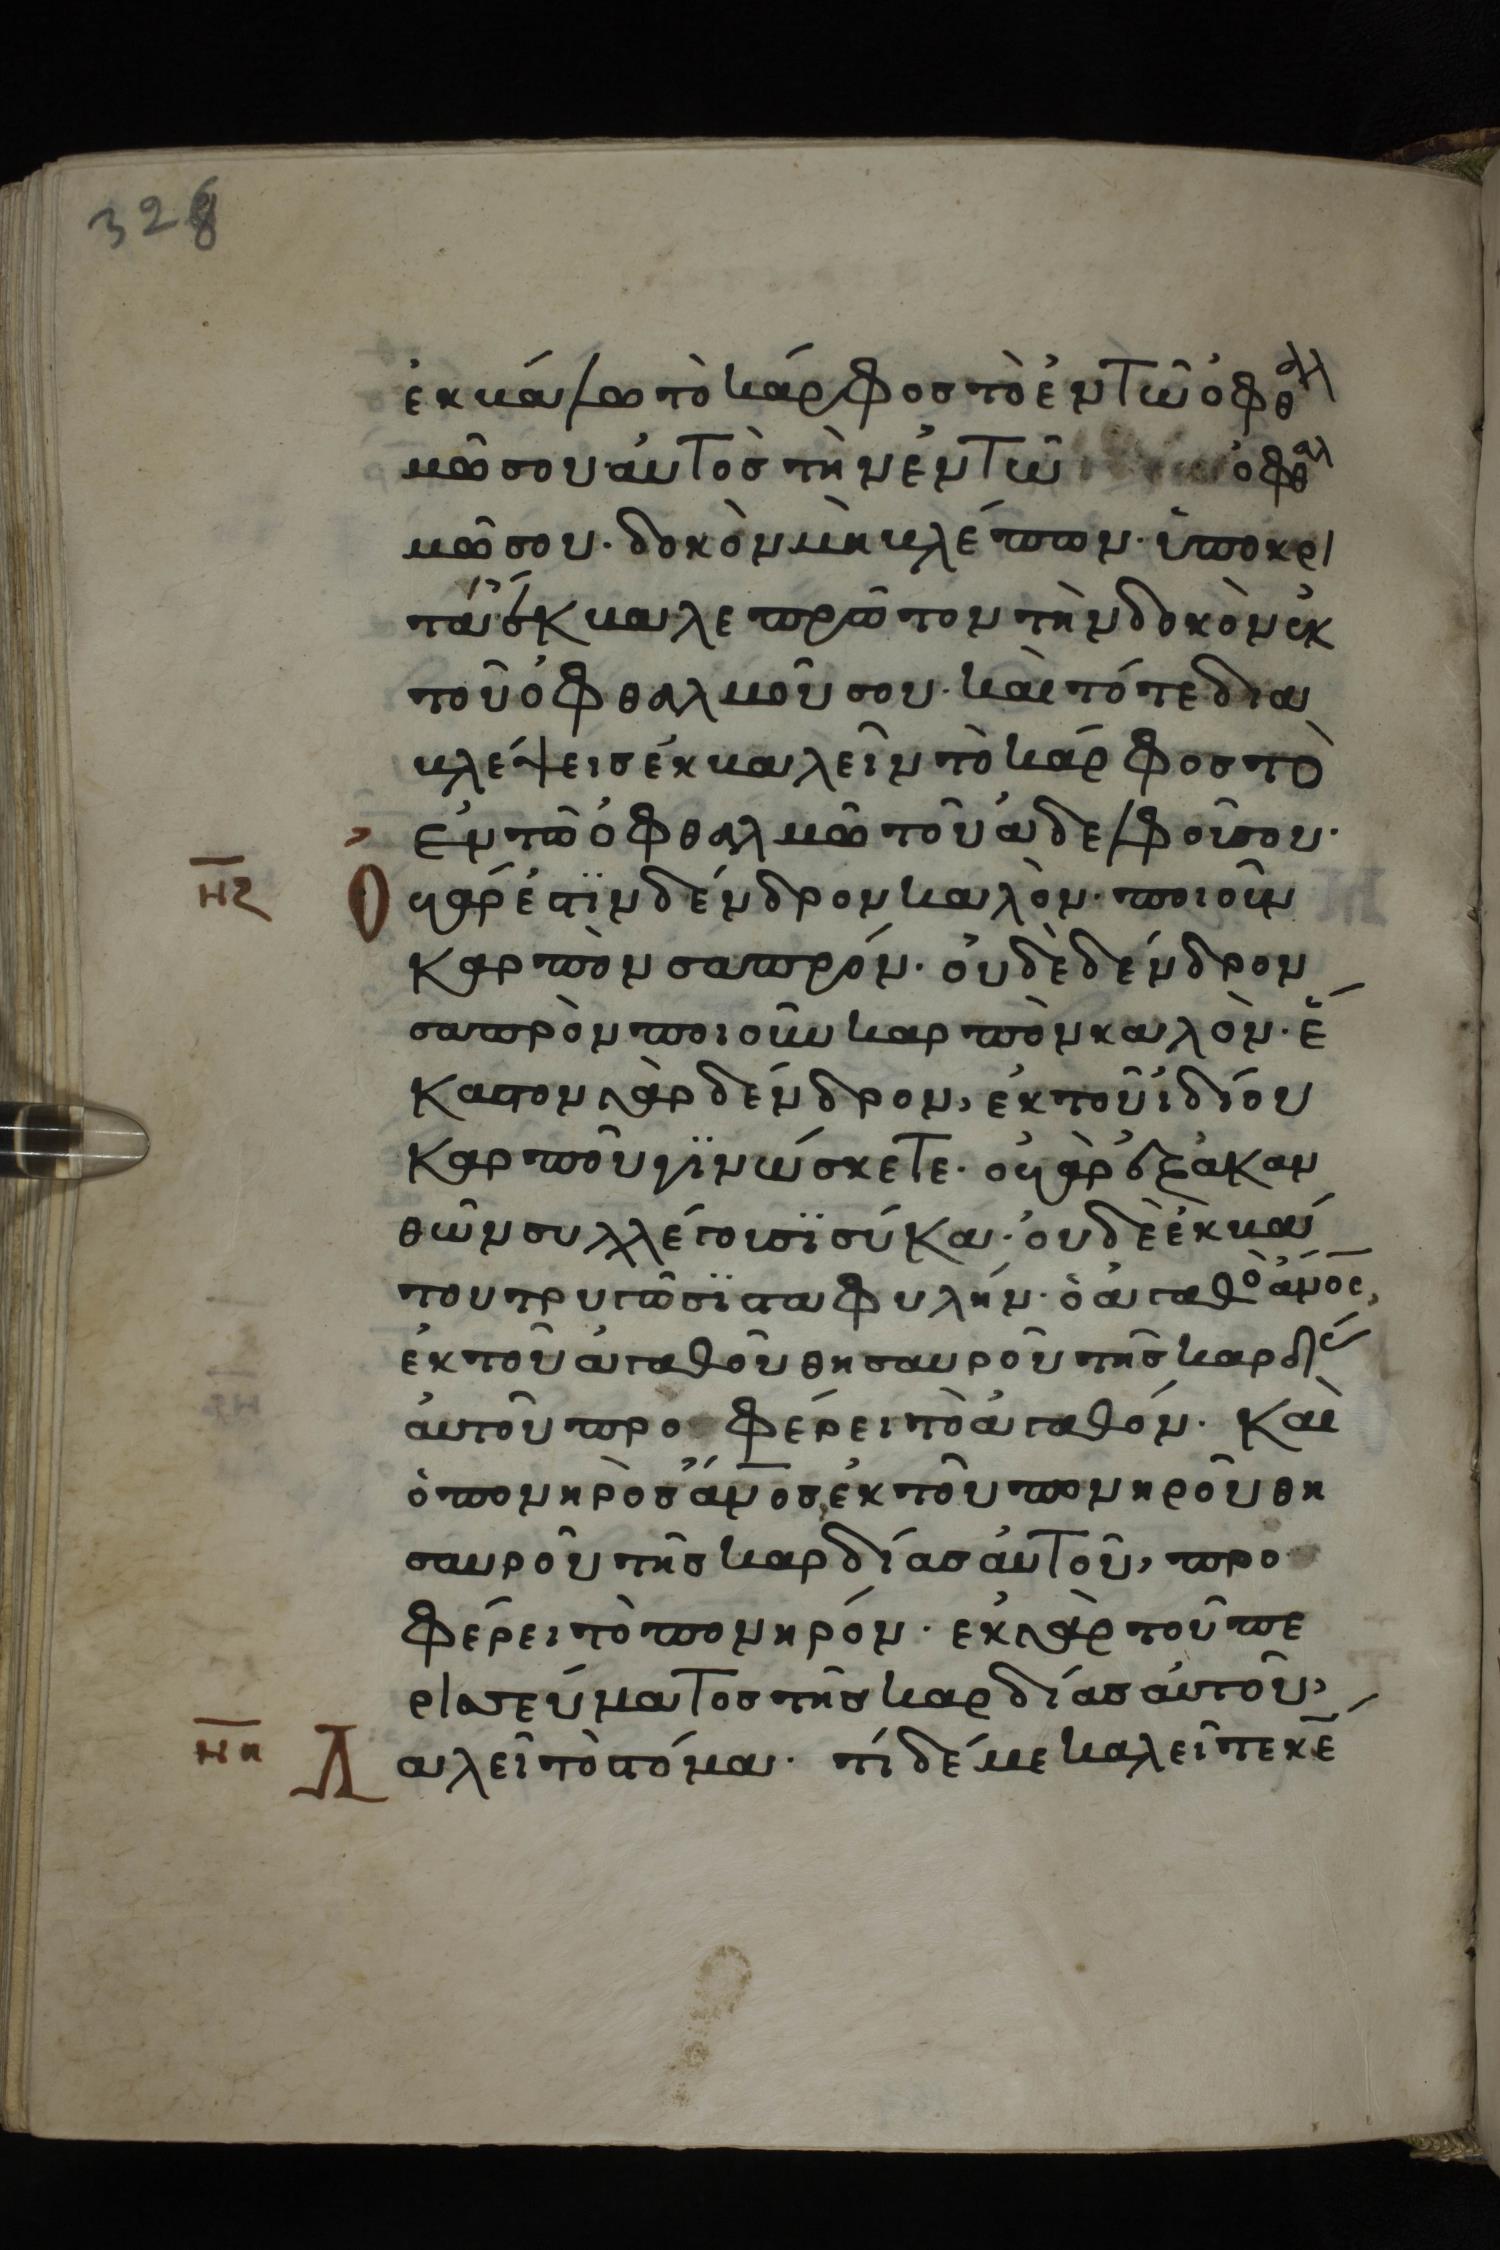 328
ἐκβάλω τὸ κάρφος τὸ ἐν τῶ ὀφθαλ
μῶ σου αὐτὸς τὴν ἐν τῶ ὀφθαλ
μῶ σου· δοκὸν μὴ βλέπων· ὑποκρι
τά ἔκβαλε πρῶτον τὴν δοκὸν ἐκ
τοῦ ὀφθαλμοῦ σου· καὶ τότε δια
βλέψεις ἐκβαλεῖν τὸ κάρφος τὸ
ἐν τῶ ὀφθαλμῶ τοῦ ἀδελφοῦ σου·
νζ Ὀυ γάρ ἐστϊν δένδρον καλὸν· ποιοῦν
καρπὸν σαπρόν· οὐδὲ δένδρον
σαπρὸν ποιοῦν καρπὸν καλὸν· ἕ
καστον γὰρ δένδρον, ἐκ τοῦ ἰδίου
καρποῦ γϊνώσκετε· οὐ γὰρ ἐξ ἀκαν
θῶν συλλέγουσϊ σύκα· οὐδὲ ἐκ βά
του τρυγῶσϊ σταφυλήν· ὁ ἀγαθὸς ἄνος,
ἐκ τοῦ ἀγαθοῦ θησαυροῦ τῆς καρδί
αὐτοῦ προφέρει τὸ ἀγαθόν· καὶ
ὁ πονηρὸς ἄνος, ἐκ τοῦ πονηροῦ θη
σαυροῦ τῆς καρδίας αὐτοῦ, προ
φέρει τὸ πονηρόν· ἐκ γὰρ τοῦ πε
ρισσεύματος τῆς καρδίας αὐτοῦ,
νη λαλεῖ τὸ στόμα· τί δέ με καλεῖτε κε